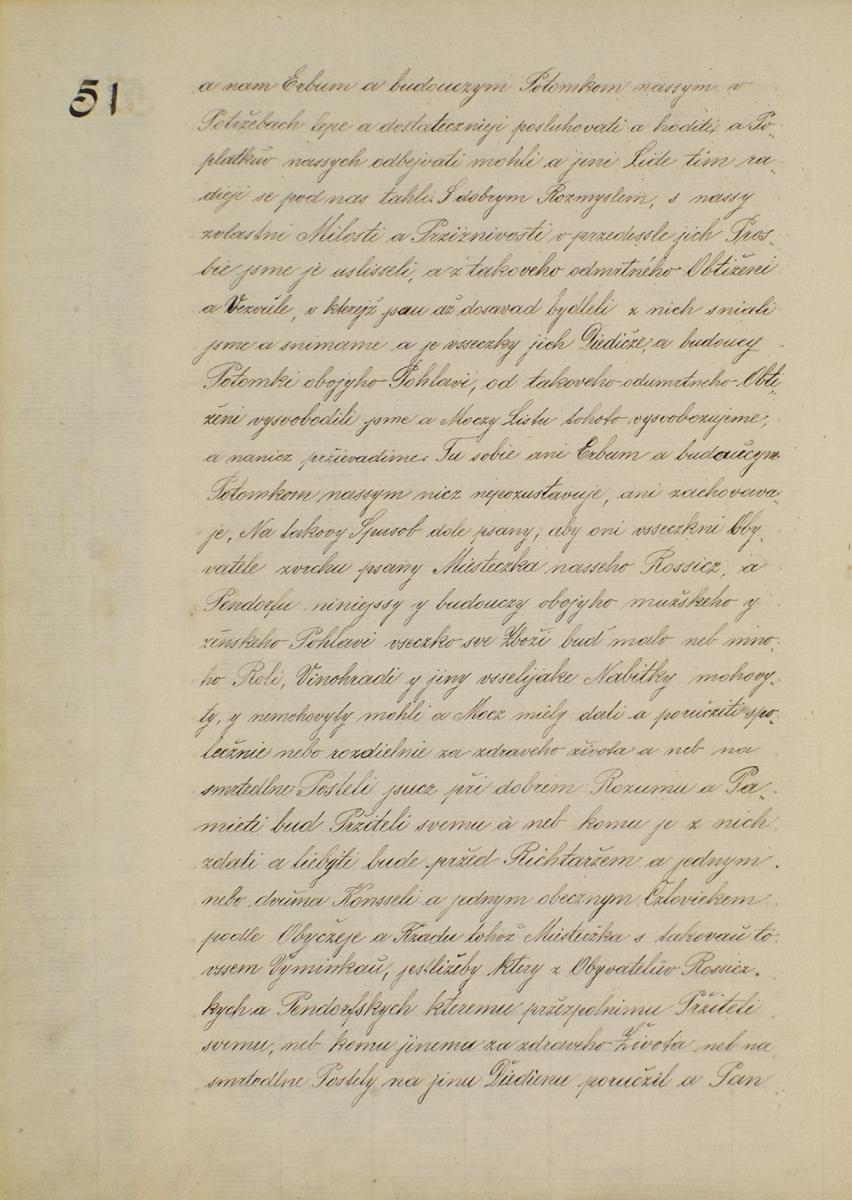 51
a nam Erbum a budouczym Potomkom nassym v
Potržebach lepe a dostatecznieji posluhovati a hoditi, a Po-
platkuv nassych odbejvati mohli a jini Lide tim ra-
dieji se pod nas tahli. S dobrym Rozmyslem, s nassy
zvlastni Milosti a Prziznivosti v przedessle jich Pros-
bie jsme je uslisseli, a z takoveho odmrtného Obtiženi
a Vezvule, v kterejž jsau až dosavad bydleli z nich sniali
jsme a snimame a je vsseczky jich Diediče, a budoucy
Potomki obojyho Pohlavi, od takoveho odumrtneho Obti-
ženi vysvobodili jsme a Moczy Listu tohoto vysvobozujeme,
a nanicz pržievadime. Tu sobie ani Erbum a budaucym
Potomkom nassym nicz nepozustavuje, ani zachovava-
je, Na takovy Spusob dole psany, aby oni vsseczkni Oby-
vatele zvrchu psany Miesteczka nasseho Rossicz, a
Pendorfu niniejssy y budouczy obojyho mužskeho y
zinskeho Pohlavi vseczko sve Zboži bud malo neb mno-
ho Roli, Vinohradi y jiny vsselijake Nabitky mohovy-
ty, y nemohovyty mohli a Mocz miely dati a poručziti spo-
lecžnie nebo rozdielnie za zdraveho života a neb na
smrtedlne Posteli jsucz při dobrem Rozumu a Pa-
mieti bud Pržiteli svemu à neb komu je z nich
zdati a liebyti bude pržed Richtaržem a jednym
nebo dvůma Konsseli a jednym obecznym Czloviekem
podle Obyčzeje a Rzadu tohož Miesticžka s takovaú to
vssem Vyminkaú, jestližeby ktery z Obyvatelův Rossicz-
kych a Pendorfskych kteremu pržezpolnimu Pržiteli
svemu, neb komu jinemu za zdraveho Života neb na
smrtedlne Postely na jinu Diedienu poručžil a Pan